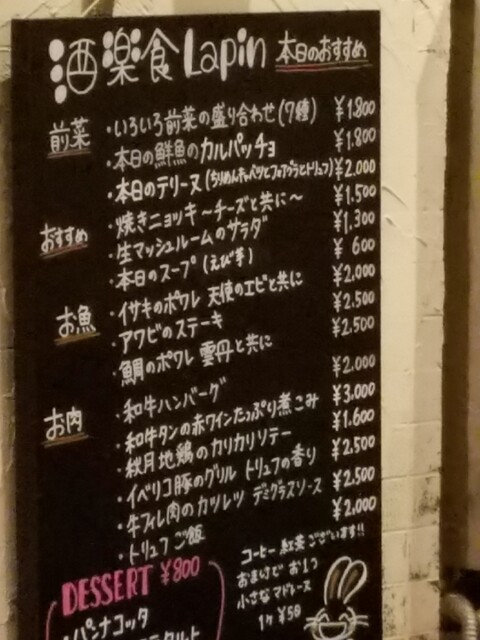 酒楽食 Lapin 本日のおすすめ
前菜
・いろいろ前菜の盛り合わせ(7種) ¥1.800
・本日の鮮魚のカルパッチョ ¥1.800
・本日のテリーヌ(ちりめんキャベツとフォアグラとトリュフ) ¥2.000
おすすめ
・焼きニョッキ〜チーズと共に〜 ¥1.500
・生マッシュルームのサラダ ¥1.300
・本日のスープ(えび芋) ¥600
お魚
・イサキのポワレ 天使のエビと共に ¥2.000
・アワビのステーキ ¥2.500
・鯛のポワレ 雲丹と共に ¥2.500
お肉
・和牛ハンバーグ ¥2.000
・和牛タンの赤ワインたっぷり煮こみ ¥3.000
・秋月地鶏のカリカリソテー ¥1.600
・イベリコ豚のグリル トリュフの香り ¥2.500
・牛フィレ肉のカツレツ デミグラスソース ¥2.500
・トリュフご飯 ¥2.000
DESSERT ¥800
・パンナコッタ
コーヒー 紅茶ございます!!
おまけで お1つ
小さなマドレーヌ
1ヶ ¥50